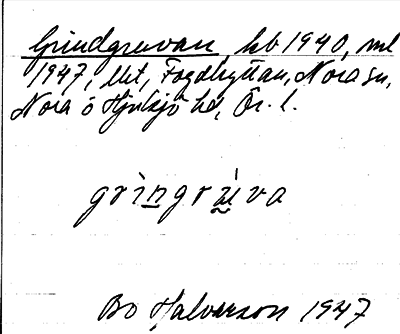 Grindgruvan, kb 1940, ml
1947, lht, Fogdhyttan, Nora sn,
Nora o Hjulsjö hd, Ör. l.
grìngrúva
Bo Halvarson 1947